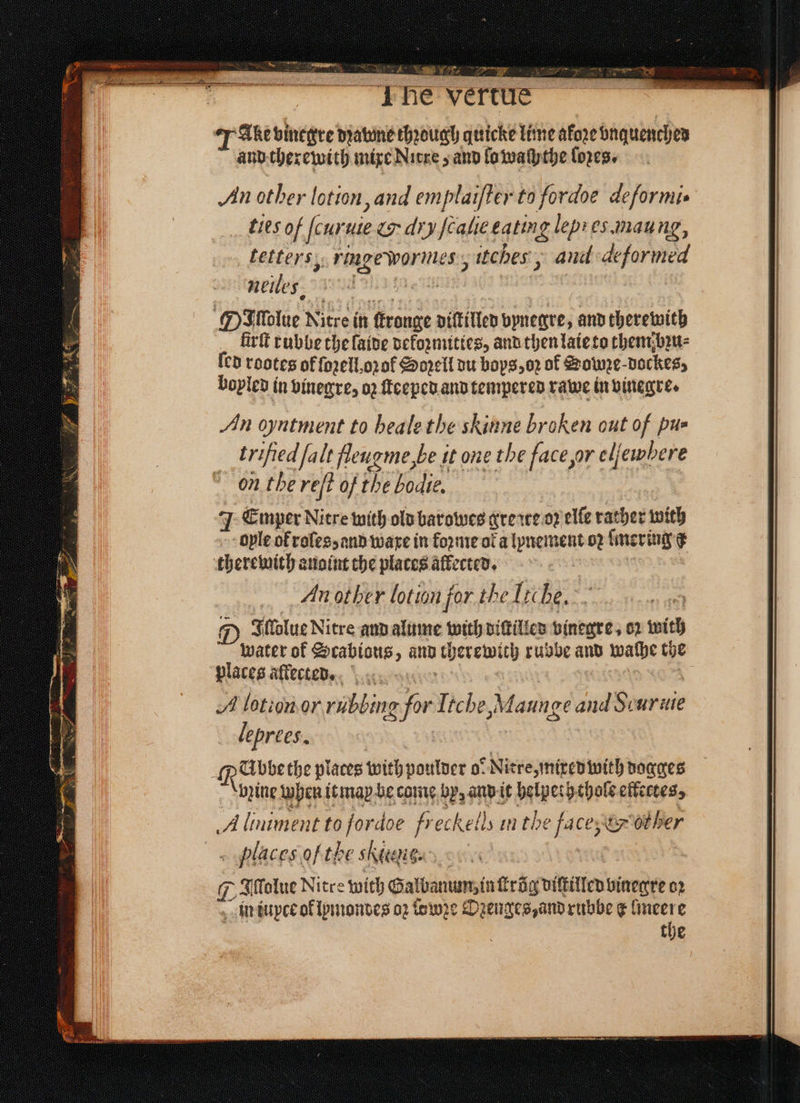 The vertue
TAke vinegre drawne through quicke lime afore vnquenched
and therewith mixe Nitre, and so wash the sores.
An other lotion, and emplaister to fordoe deformi-
ties of scuruie & dry scalie eating lepres, maung,
tetters, ringewormes, itches, and deformed
neiles.
DIssolue Nitre in stronge distilled vynegre, and therewith
first rubbe the saide deformities, and then laie to them, bru-
sed rootes of sorell, or of Sorell du boys, or of Sowre-dockes,
boyled in vinegre, or steeped and tempered rawe in vinegre.
An oyntment to heale the skinne broken out of pu-
trified salt fleugme, be it one the face, or elsewhere
on the rest of the bodie.
TEmper Nitre with old barowes grece or else rather with
oyle of roses, and waxe in forme of a lynement or smering &
therewith anoint the places affected.
An other lotion for the Itche.
DIssolue Nitre and alume with distilled vinegre, or with
water of Scabious, and therewith rubbe and washe the
places affected.
A lotion or rubbing for Itche, Maunge and Scuruie
leprees.
RUbbe the places with poulder of Nitre, mixed with dogges
vrine when it may be come by, and it helpeth those effectes,
A liniment to fordoe freckells in the face, & other
places of the skinne.
DIssolue Nitre with Galbanum, in strōg distilled vinegre or
in iuyce of lymondes or sowre Orenges, and rubbe & smeere
the